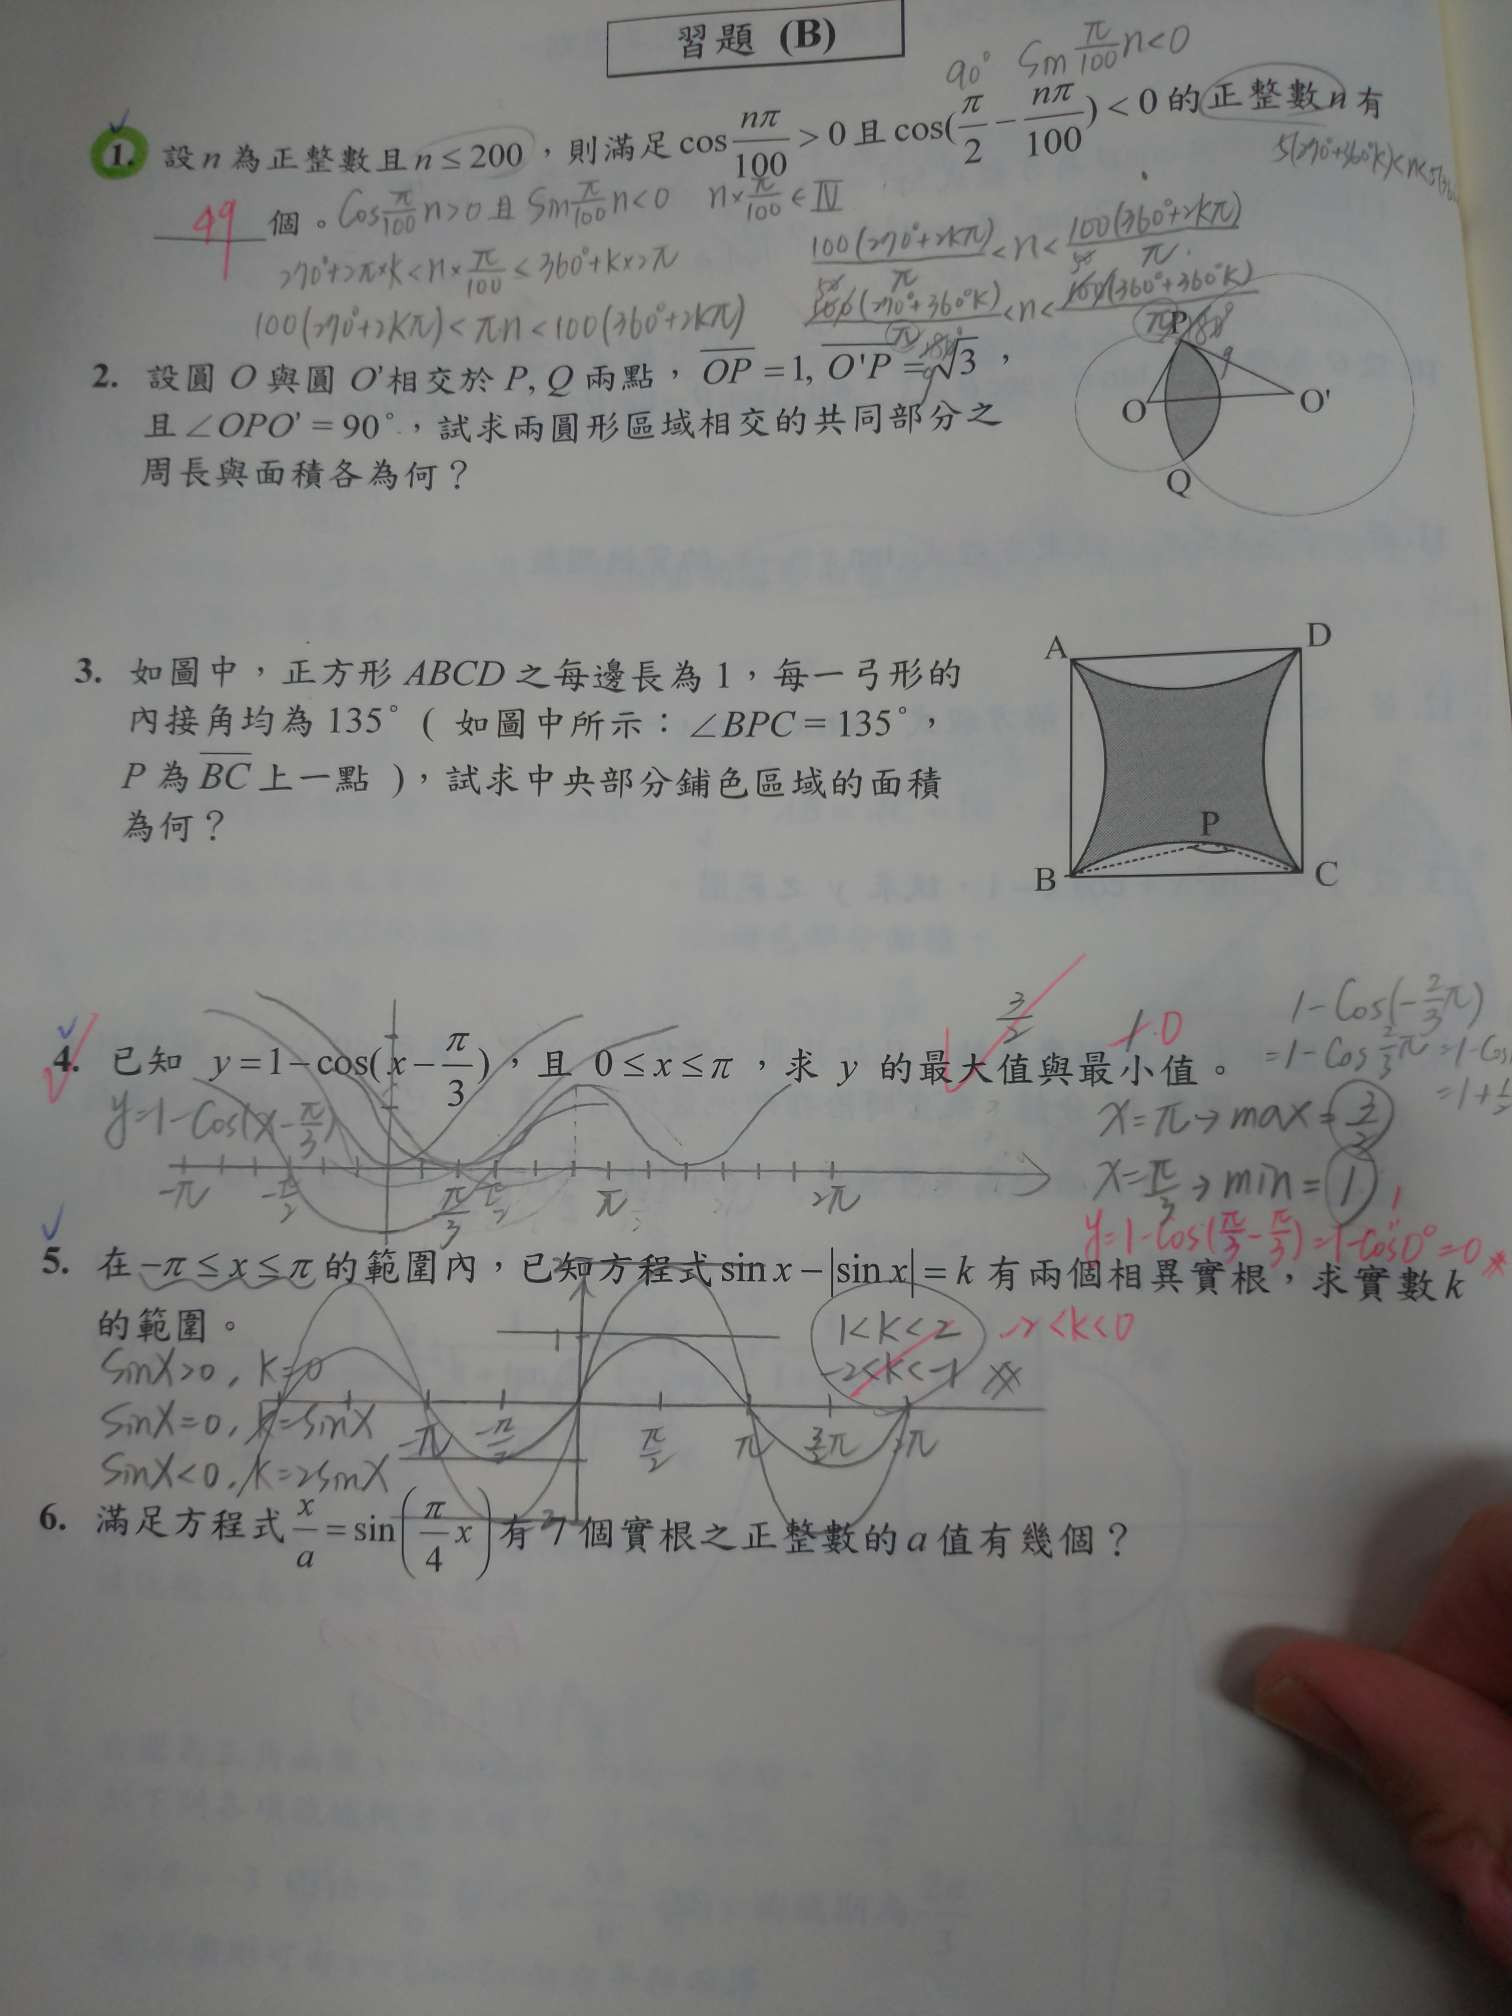 習題 (B)
90° Sin π/100 n<0
1. 設 n 為正整數且 n ≤ 200 ，則滿足 cos nπ/100 > 0 且 cos(π/2 − nπ/100) < 0 的正整數 n 有
5(270°+360°K)<n<5(360
49 個。 Cos π/100 n>0 且 Sin π/100 n<0 n×π/100 ∈ Ⅳ
270°+2π×K<n×π/100<360°+K×2π
100(270°+2Kπ)/π<n<100(360°+2Kπ)/π
100(270°+2Kπ)<πn<100(360°+2Kπ)
100(270°+360°K)/π<n<100(360°+360°K)/π
180°
2. 設圓 O 與圓 O' 相交於 P, Q 兩點，OP = 1, O'P = √3 ，
且 ∠OPO' = 90°，試求兩圓形區域相交的共同部分之
周長與面積各為何？
P
O
O'
Q
3. 如圖中，正方形 ABCD 之每邊長為 1，每一弓形的
內接角均為 135° ( 如圖中所示：∠BPC = 135°，
P 為 BC 上一點 )，試求中央部分鋪色區域的面積
為何？
A
D
P
B
C
3/2
1.0
1−Cos(−2/3π)
4. 已知 y = 1 − cos( x − π/3 )，且 0 ≤ x ≤ π ，求 y 的最大值與最小值。
=1−Cos 2/3π=1−Cos
=1+1/2
y=1−Cos(x−π/3)
x=π→max=3/2
x=π/3→min=1
−π −π/2 π/3 π/2 π 2π
y=1−Cos(π/3−π/3)=1−Cos0°=0
1
5. 在 −π ≤ x ≤ π 的範圍內，已知方程式 sin x − |sin x| = k 有兩個相異實根，求實數 k
的範圍。
1<K<2
−2<K<0
−2<K<−1
SinX>0, K=0
SinX=0, K=SinX
SinX<0, K=2SinX
−π −π/2 π/2 π 3/2π 2π
6. 滿足方程式 x/a = sin(π/4 x) 有 7 個實根之正整數的 a 值有幾個？